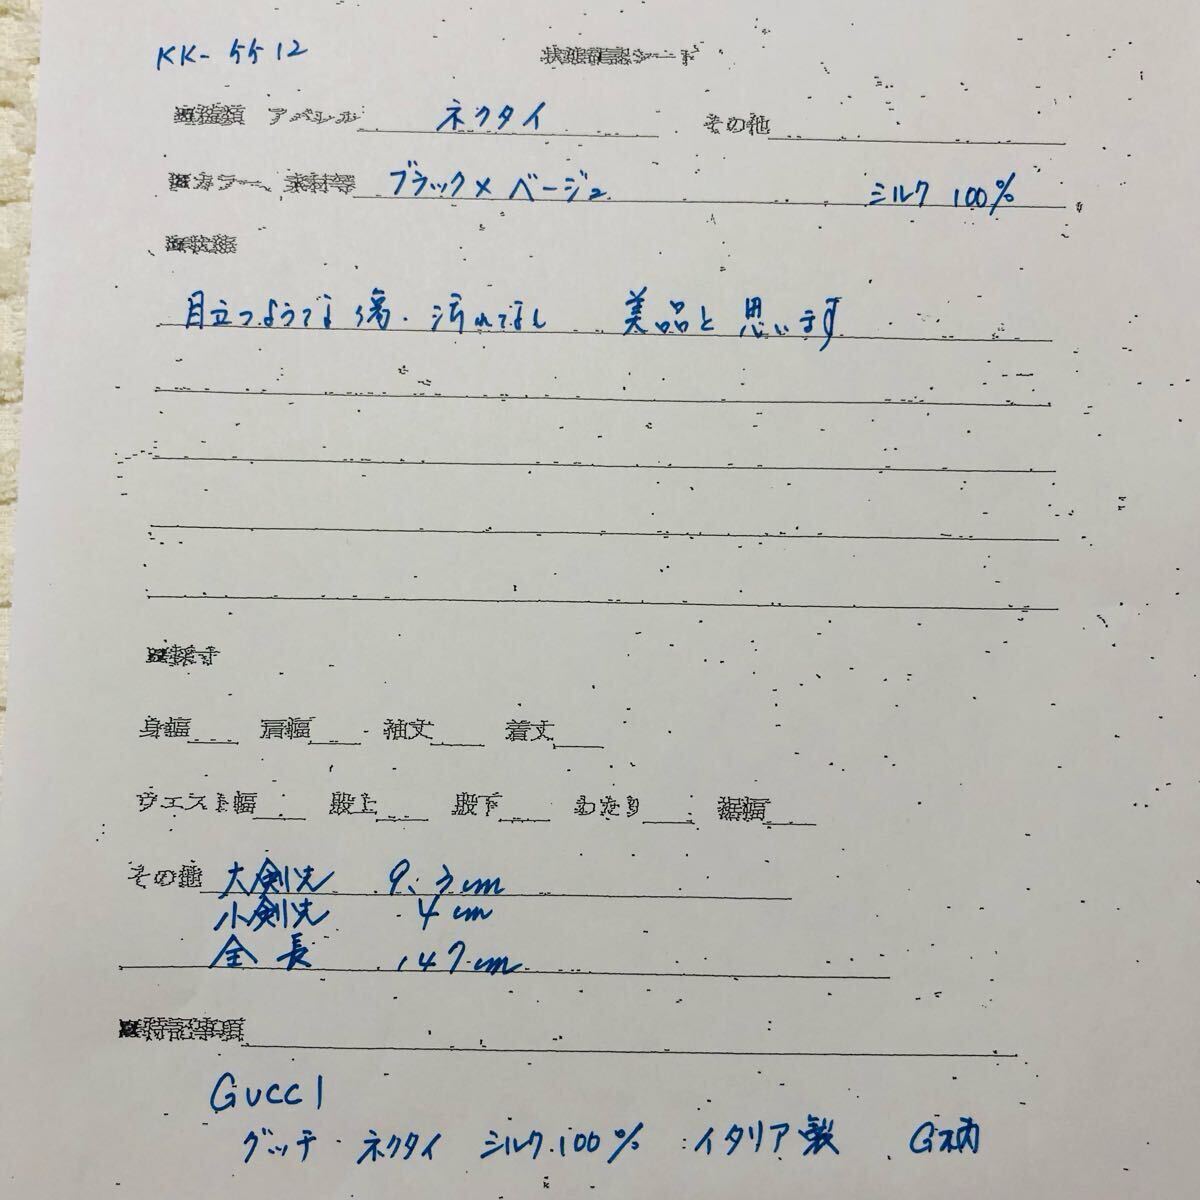 KK-5512
状態確認シート
■種類 アパレル ネクタイ その他
■カラー、素材等 ブラック×ベージュ シルク 100%
■状態
目立つような傷・汚れなし 美品と思います
■採寸
身幅 肩幅 袖丈 着丈
ウエスト幅 股上 股下 わたり 裾幅
その他 大剣先 9.3cm
小剣先 4cm
全長 147cm
■特記事項
GUCCI
グッチ ネクタイ シルク100% イタリア製 G柄